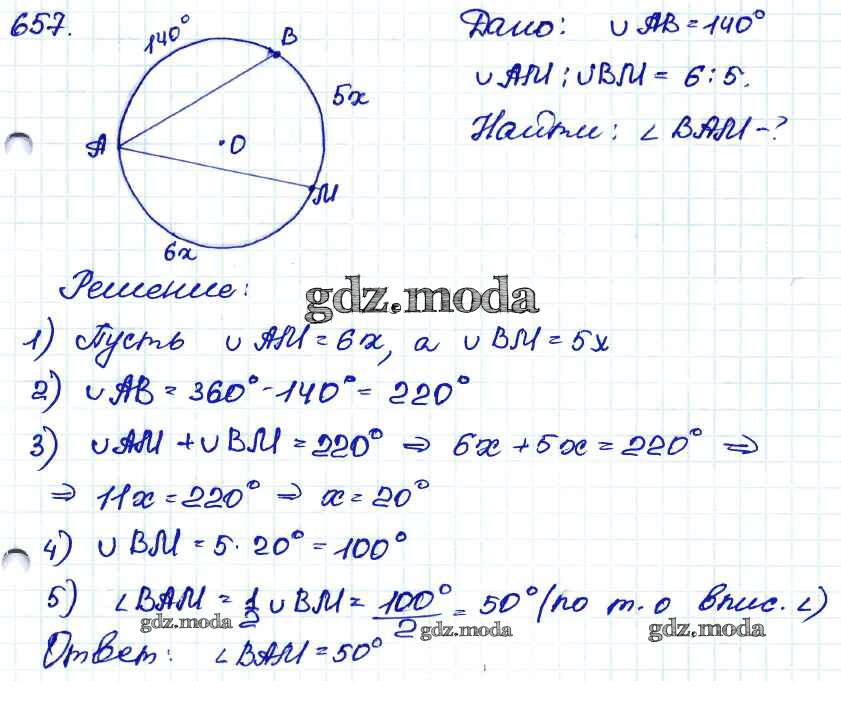 657.
140°
B
5x
A
O
M
6x
Дано: ∪ AB = 140°
∪ AM : ∪ BM = 6 : 5.
Найти: ∠ BAM - ?
Решение:
gdz.moda
1) Пусть ∪ AM = 6x, а ∪ BM = 5x
2) ∪ AB = 360° - 140° = 220°
3) ∪ AM + ∪ BM = 220° ⇒ 6x + 5x = 220° ⇒
⇒ 11x = 220° ⇒ x = 20°
4) ∪ BM = 5 · 20° = 100°
5) ∠ BAM = 1/2 ∪ BM = 100°/2 = 50° (по т. о впис. ∠)
gdz.moda gdz.moda gdz.moda
Ответ: ∠ BAM = 50°